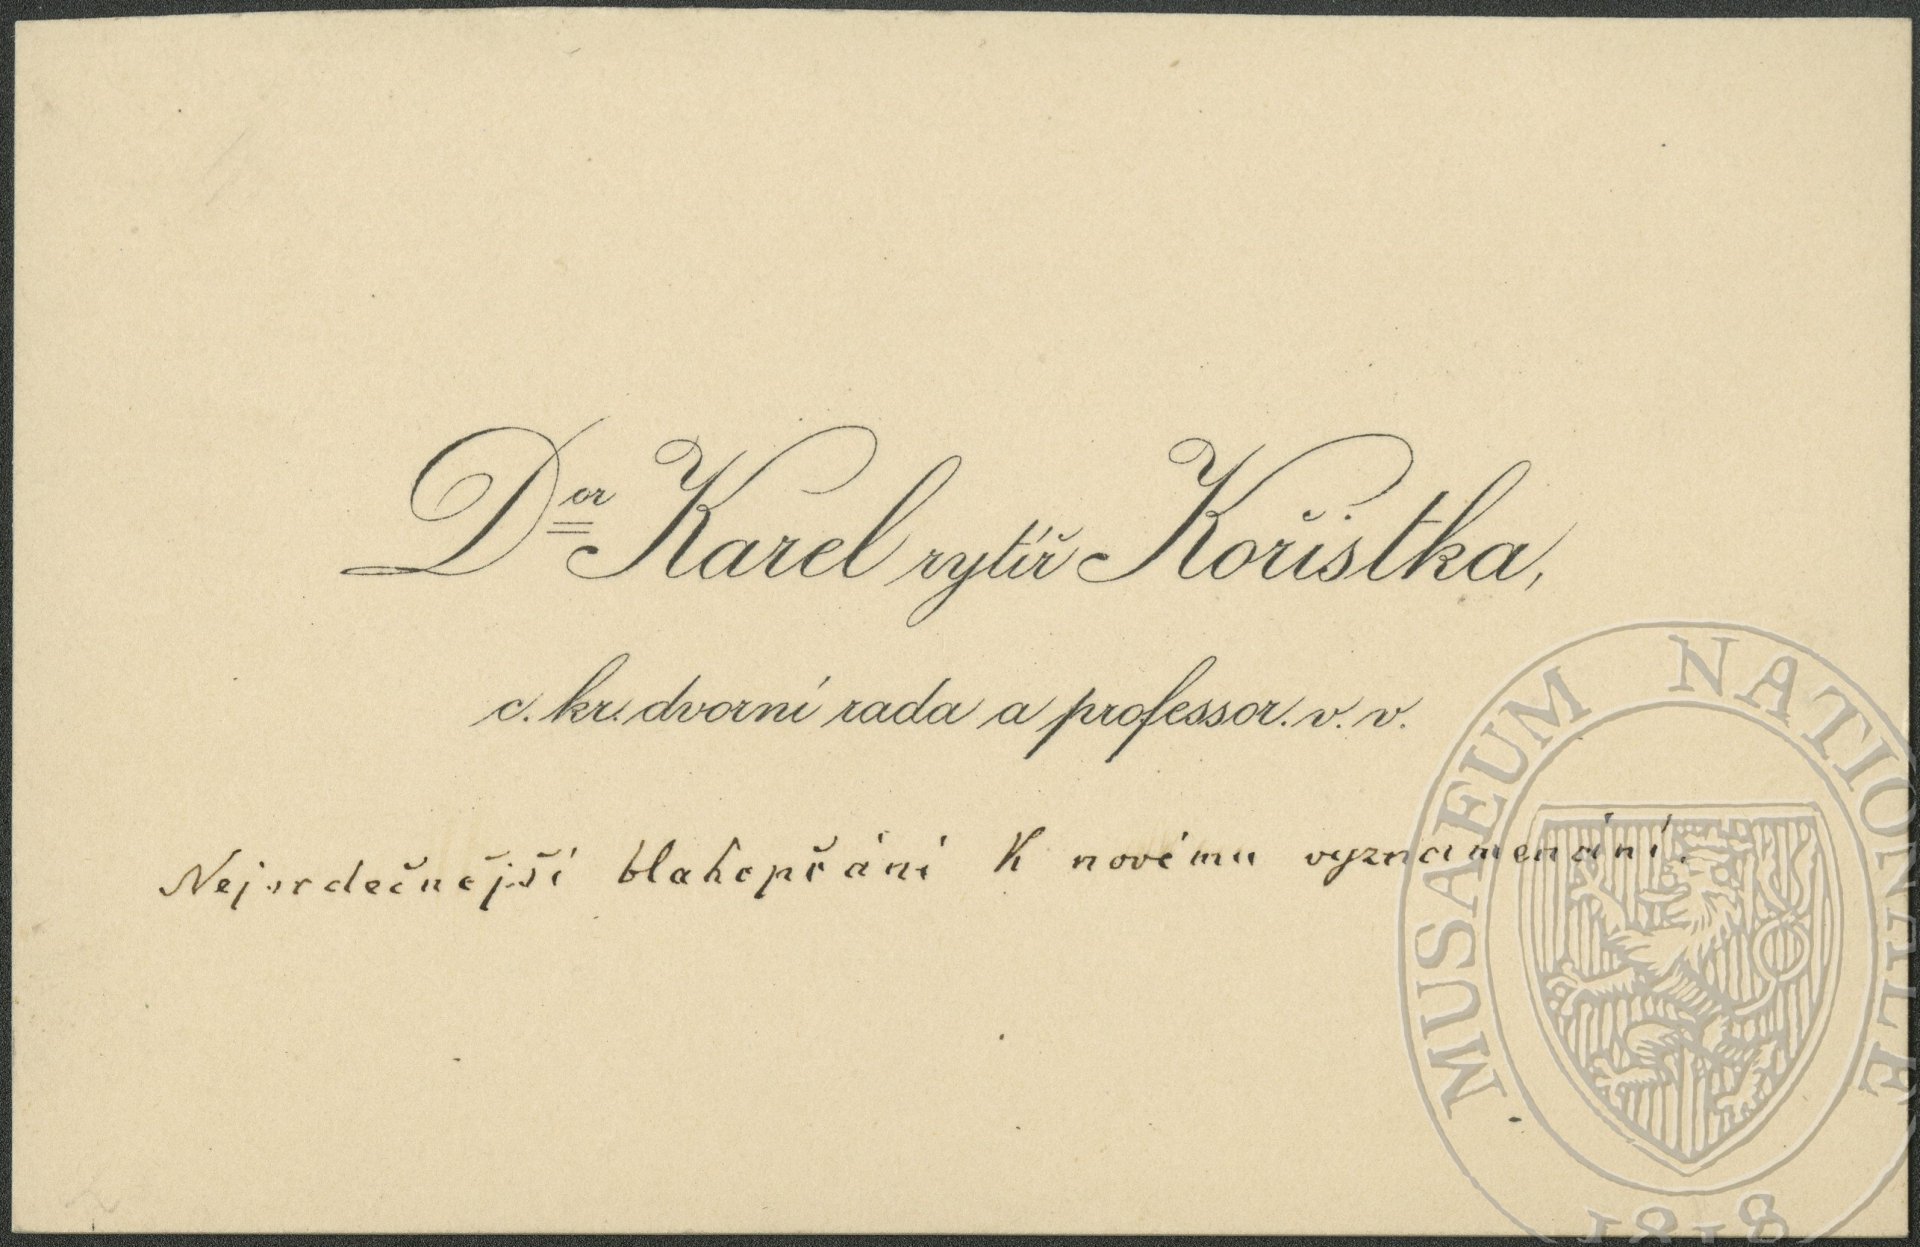 Dor Karel rytíř Kořistka,
c. kr. dvorní rada a professor. v. v.
Nejsrdečnější blahopřání k novému vyznamenání.
MUSAEUM NATIONALE
1818